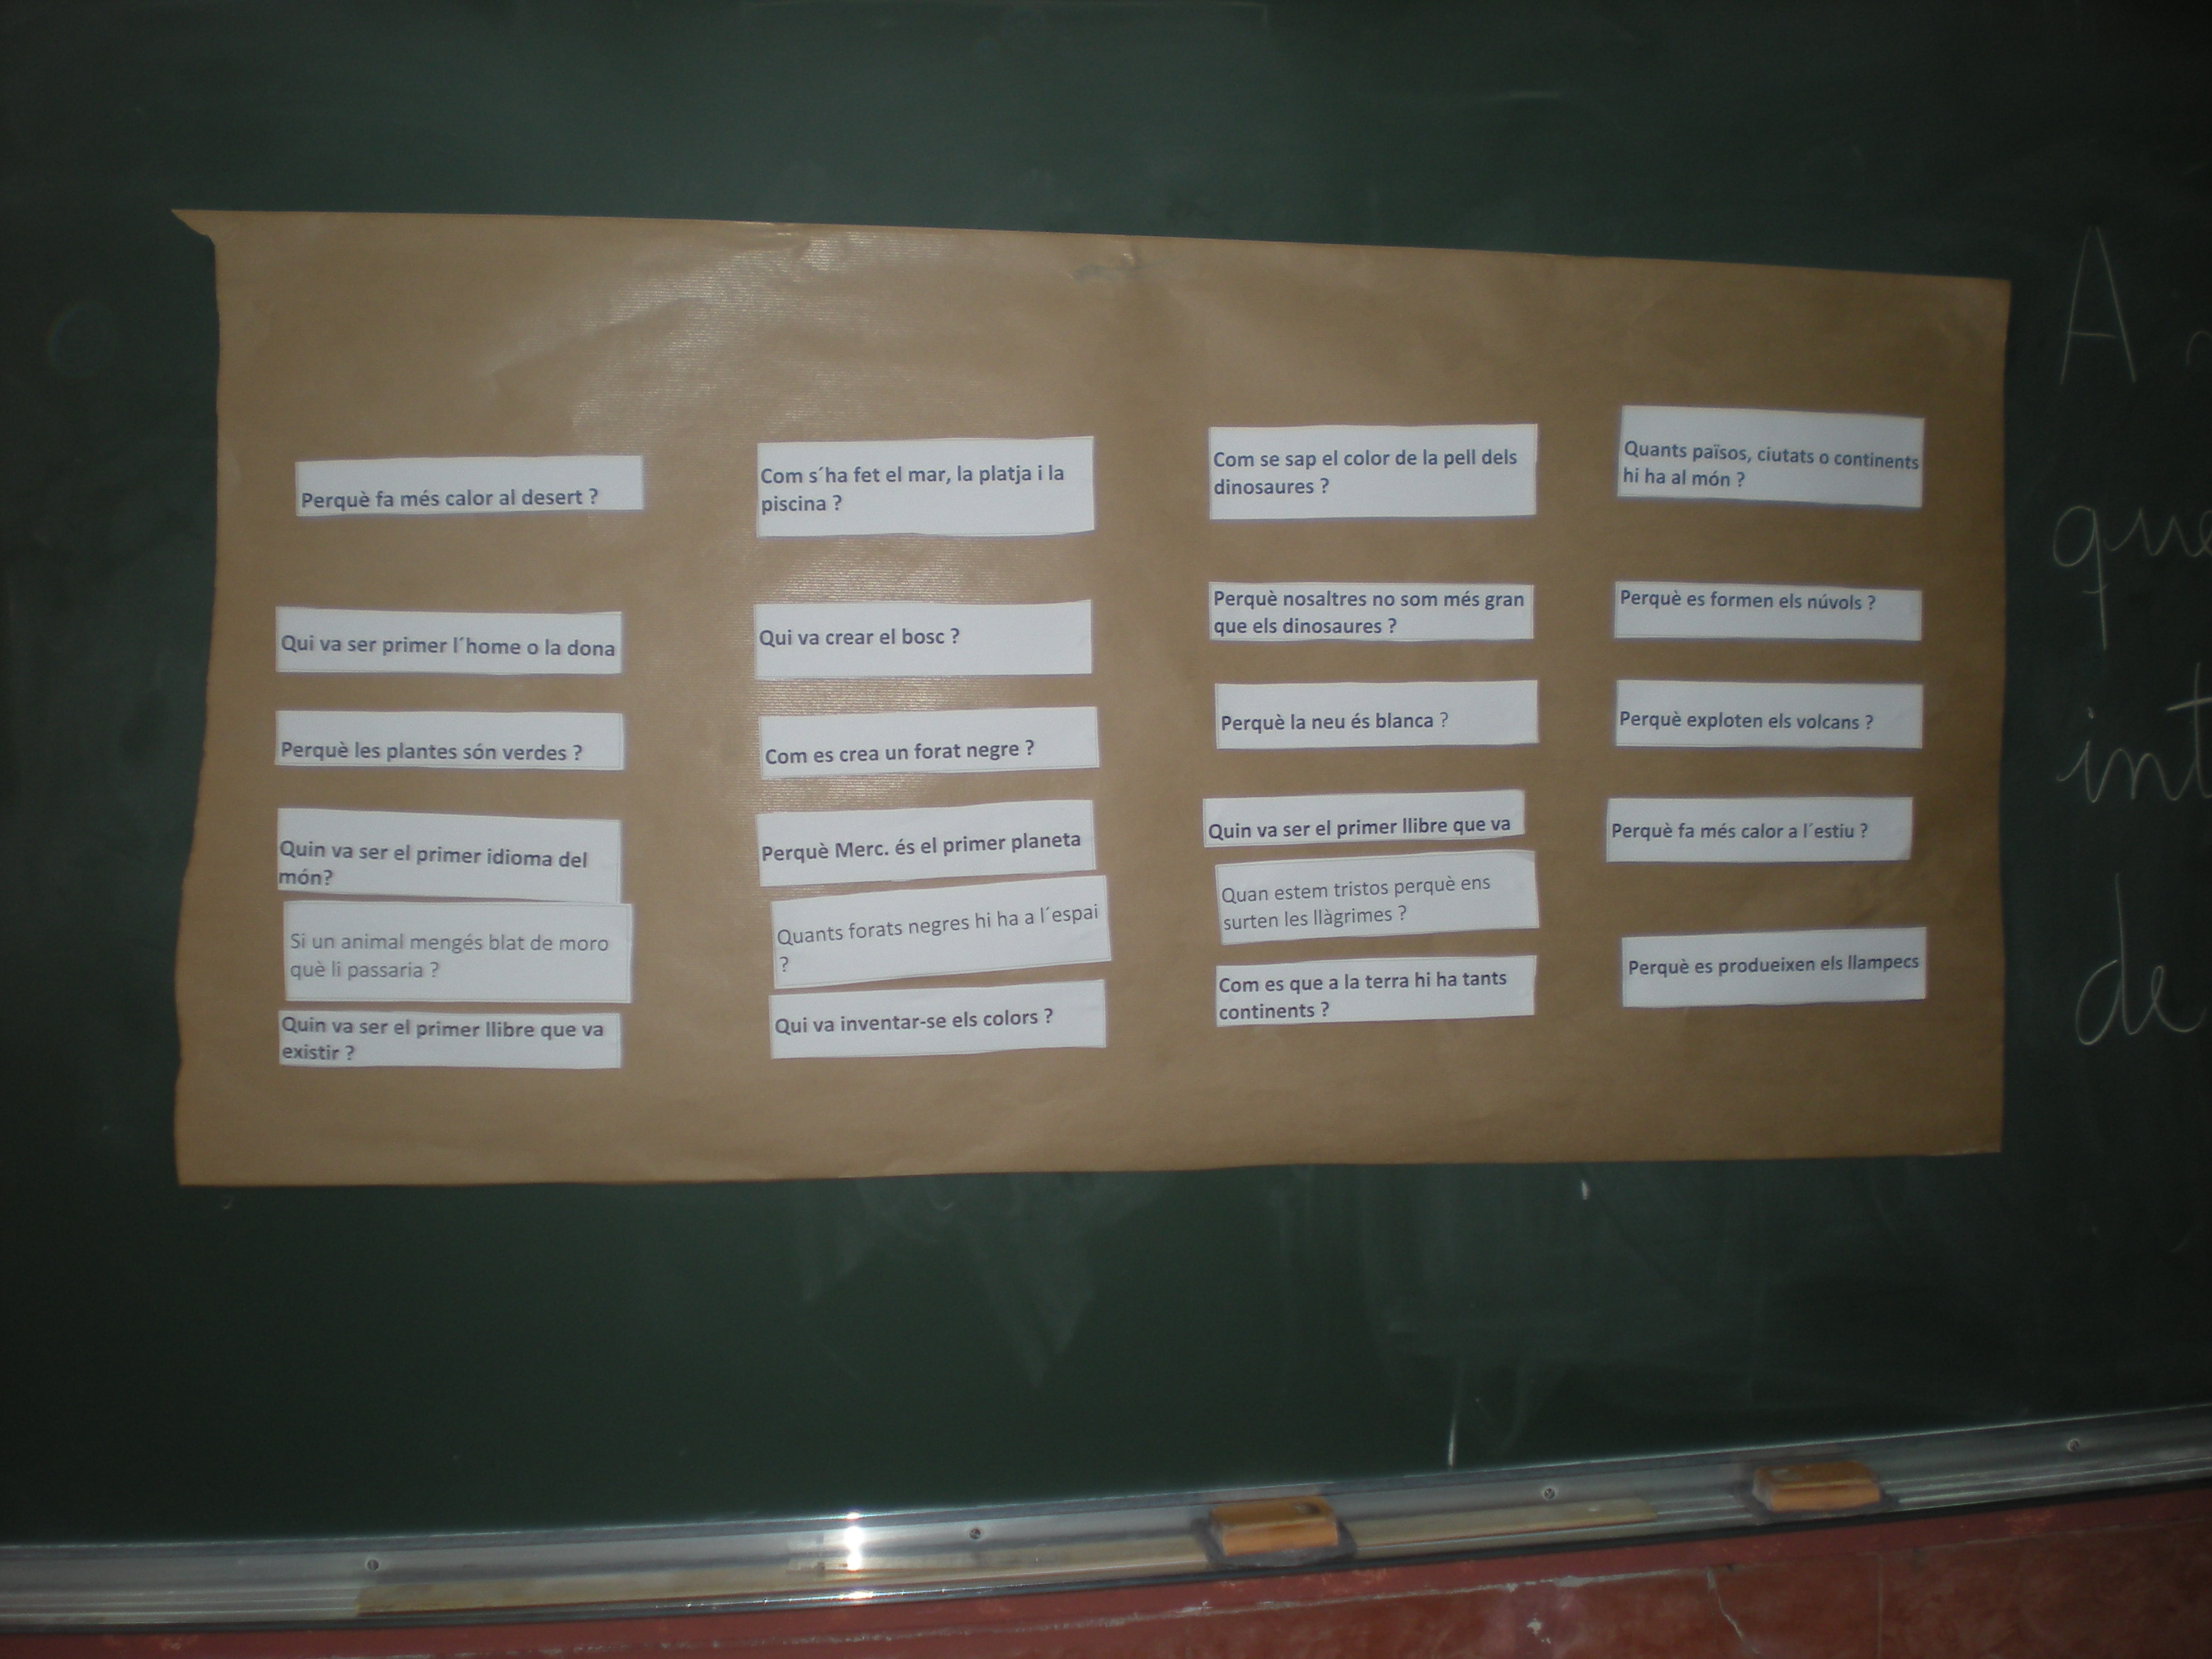 Perquè fa més calor al desert ?
Qui va ser primer l´home o la dona
Perquè les plantes són verdes ?
Quin va ser el primer idioma del
món?
Si un animal mengés blat de moro
què li passaria ?
Quin va ser el primer llibre que va
existir ?
Com s´ha fet el mar, la platja i la
piscina ?
Qui va crear el bosc ?
Com es crea un forat negre ?
Perquè Merc. és el primer planeta
Quants forats negres hi ha a l´espai
?
Qui va inventar-se els colors ?
Com se sap el color de la pell dels
dinosaures ?
Perquè nosaltres no som més gran
que els dinosaures ?
Perquè la neu és blanca ?
Quin va ser el primer llibre que va
Quan estem tristos perquè ens
surten les llàgrimes ?
Com es que a la terra hi ha tants
continents ?
Quants països, ciutats o continents
hi ha al món ?
Perquè es formen els núvols ?
Perquè exploten els volcans ?
Perquè fa més calor a l´estiu ?
Perquè es produeixen els llampecs
A
que
int
de